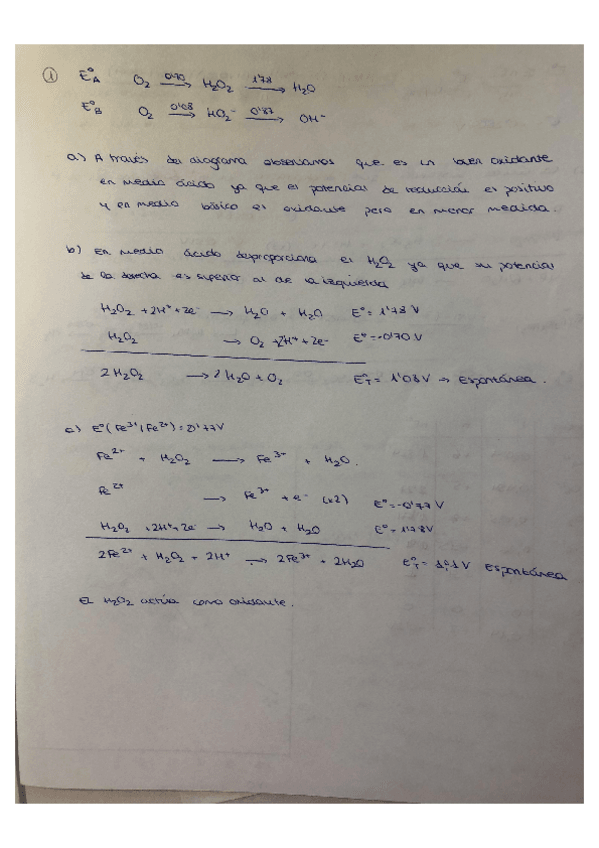 ① E°A O₂ →(0'70) H₂O₂ →(1'78) H₂O
E°B O₂ →(0'08) HO₂⁻ →(0'87) OH⁻
a) A través del diagrama observamos que es un buen oxidante
en medio ácido ya que el potencial de reducción es positivo
y en medio básico es oxidante pero en menor medida.
b) En medio ácido desproporciona el H₂O₂ ya que su potencial
de la derecha es superior al de la izquierda
H₂O₂ + 2H⁺ + 2e⁻ → H₂O + H₂O E° = 1'78 V
H₂O₂ → O₂ + 2H⁺ + 2e⁻ E° = -0'70 V
2 H₂O₂ → 2 H₂O + O₂ E°T = 1'08 V → Espontánea.
c) E° (Fe³⁺/Fe²⁺) = 0'77V
Fe²⁺ + H₂O₂ → Fe³⁺ + H₂O.
Fe²⁺ → Fe³⁺ + e⁻ (x2) E° = -0'77 V
H₂O₂ + 2H⁺ + 2e⁻ → H₂O + H₂O E° = 1'78V
2Fe²⁺ + H₂O₂ + 2H⁺ → 2Fe³⁺ + 2H₂O E°T = 1'01 V Espontánea
El H₂O₂ actúa como oxidante.